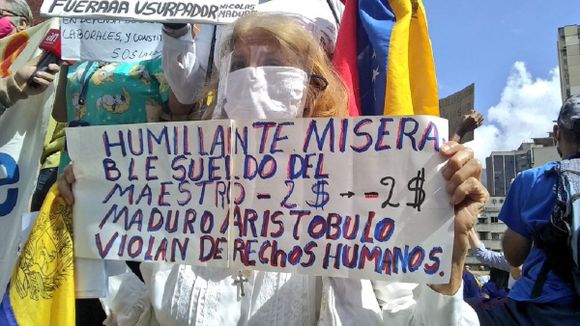 FUERAAA USURPADOR NICOLAS MADURO
EN DEFENSA DE
LABORALES, Y CONSTIT
SOS LA
HUMILLANTE MISERA
BLE SUELDO DEL
MAESTRO - 2 $ → - 2 $
MADURO ARISTOBULO
VIOLAN DERECHOS HUMANOS.